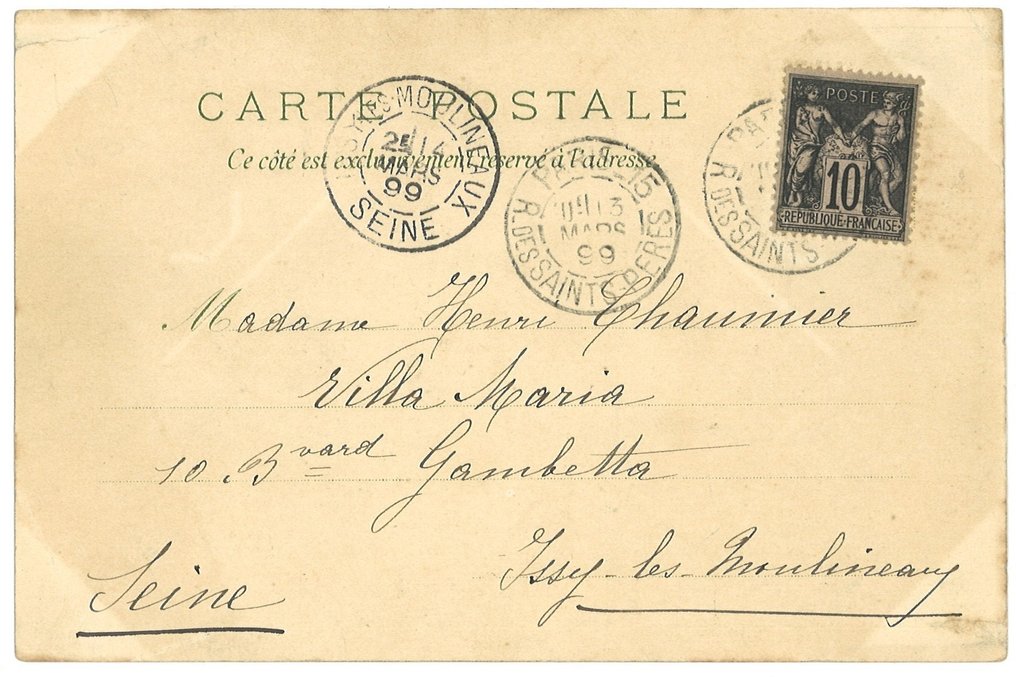 CARTE POSTALE
Ce côté est exclusivement réservé à l'adresse.
ISSY-LES-MOULINEAUX
14
MARS
99
SEINE
PARIS-15
13
MARS
99
R. DES SAINTS-PÈRES
R. DES SAINTS-
POSTE
10
REPUBLIQUE-FRANÇAISE
Madame Henri Chaumier
Villa Maria
10 Bvard Gambetta
Issy-les-Moulineaux
Seine